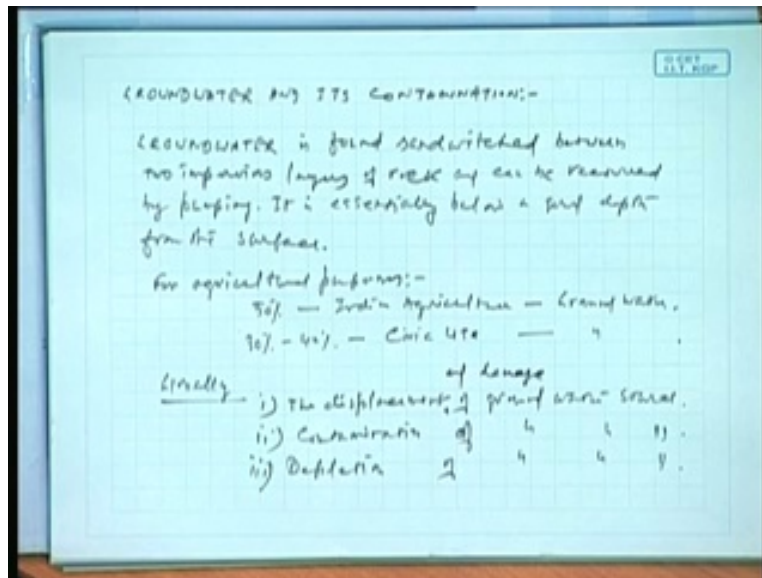 © CET
I.I.T. KGP
GROUNDWATER AND ITS CONTAMINATION:-
GROUNDWATER is found sandwitched between
two impervious layers of rock and can be recovered
by pumping. It is essentially below a good depth
from the surface.
For agricultural purposes:-
50% — Indian Agriculture — Ground water.
30% - 40% — Civic Use — " .
and damage
i) The displacement of ground water source.
ii) Contamination of " " " .
iii) Depletion of " " "